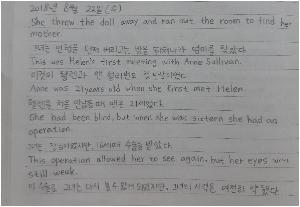 2018년 8월 22일 (수)
She threw the doll away and ran out the room to find her
mother.
그녀는 인형을 던져 버리고는 방을 뛰쳐나가 엄마를 찾았다.
This was Helen's first meeting with Anne Sullivan.
이것이 헬렌과 앤 설리번의 첫 만남이었다.
Anne was 21years old when she first met Helen.
헬렌을 처음 만났을때 앤은 21살이었다.
She had been blind, but when she was sixteen she had an
operation.
그녀는 수술을 받았다.
This operation allowed her to see again, but her eyes were
still weak.
이 수술로 그녀는 다시 볼수 있게 되었지만, 그녀의 시력은 여전히 약했다.